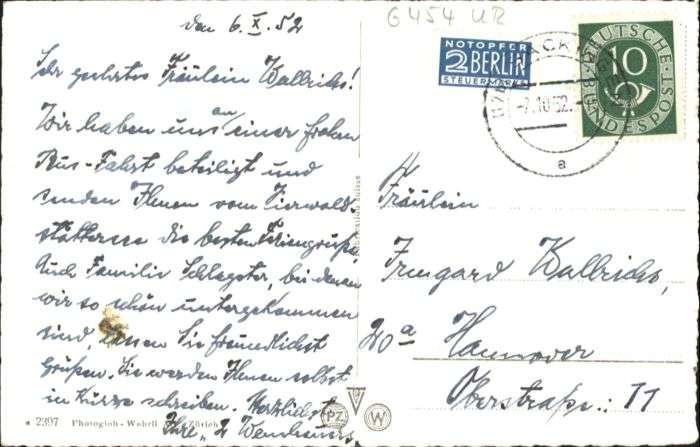 den 6. X. 52
G 454 UR
Sehr geehrtes Fräulein Wallrichs!
Wir haben uns an einer frohen
Bus-Fahrt beteiligt und
senden Ihnen vom Vierwald-
stättersee die besten Feriengrüße.
Auch Familie Schlageter, bei denen
wir so schön untergekommen
sind, lassen Sie freundlichst
grüßen. Sie werden Ihnen selbst
in Kürze schreiben. Herzlichst
Ihre 2
2397 Photoglob-Wehrli Zürich
NOTOPFER
2 BERLIN
STEUERMARKE
-7.10.52.
a
10
DEUTSCHE
BUNDESPOST
Fräulein
Irmgard Wallrichs,
20a Hannover
Oberstraße: 11
PZ W